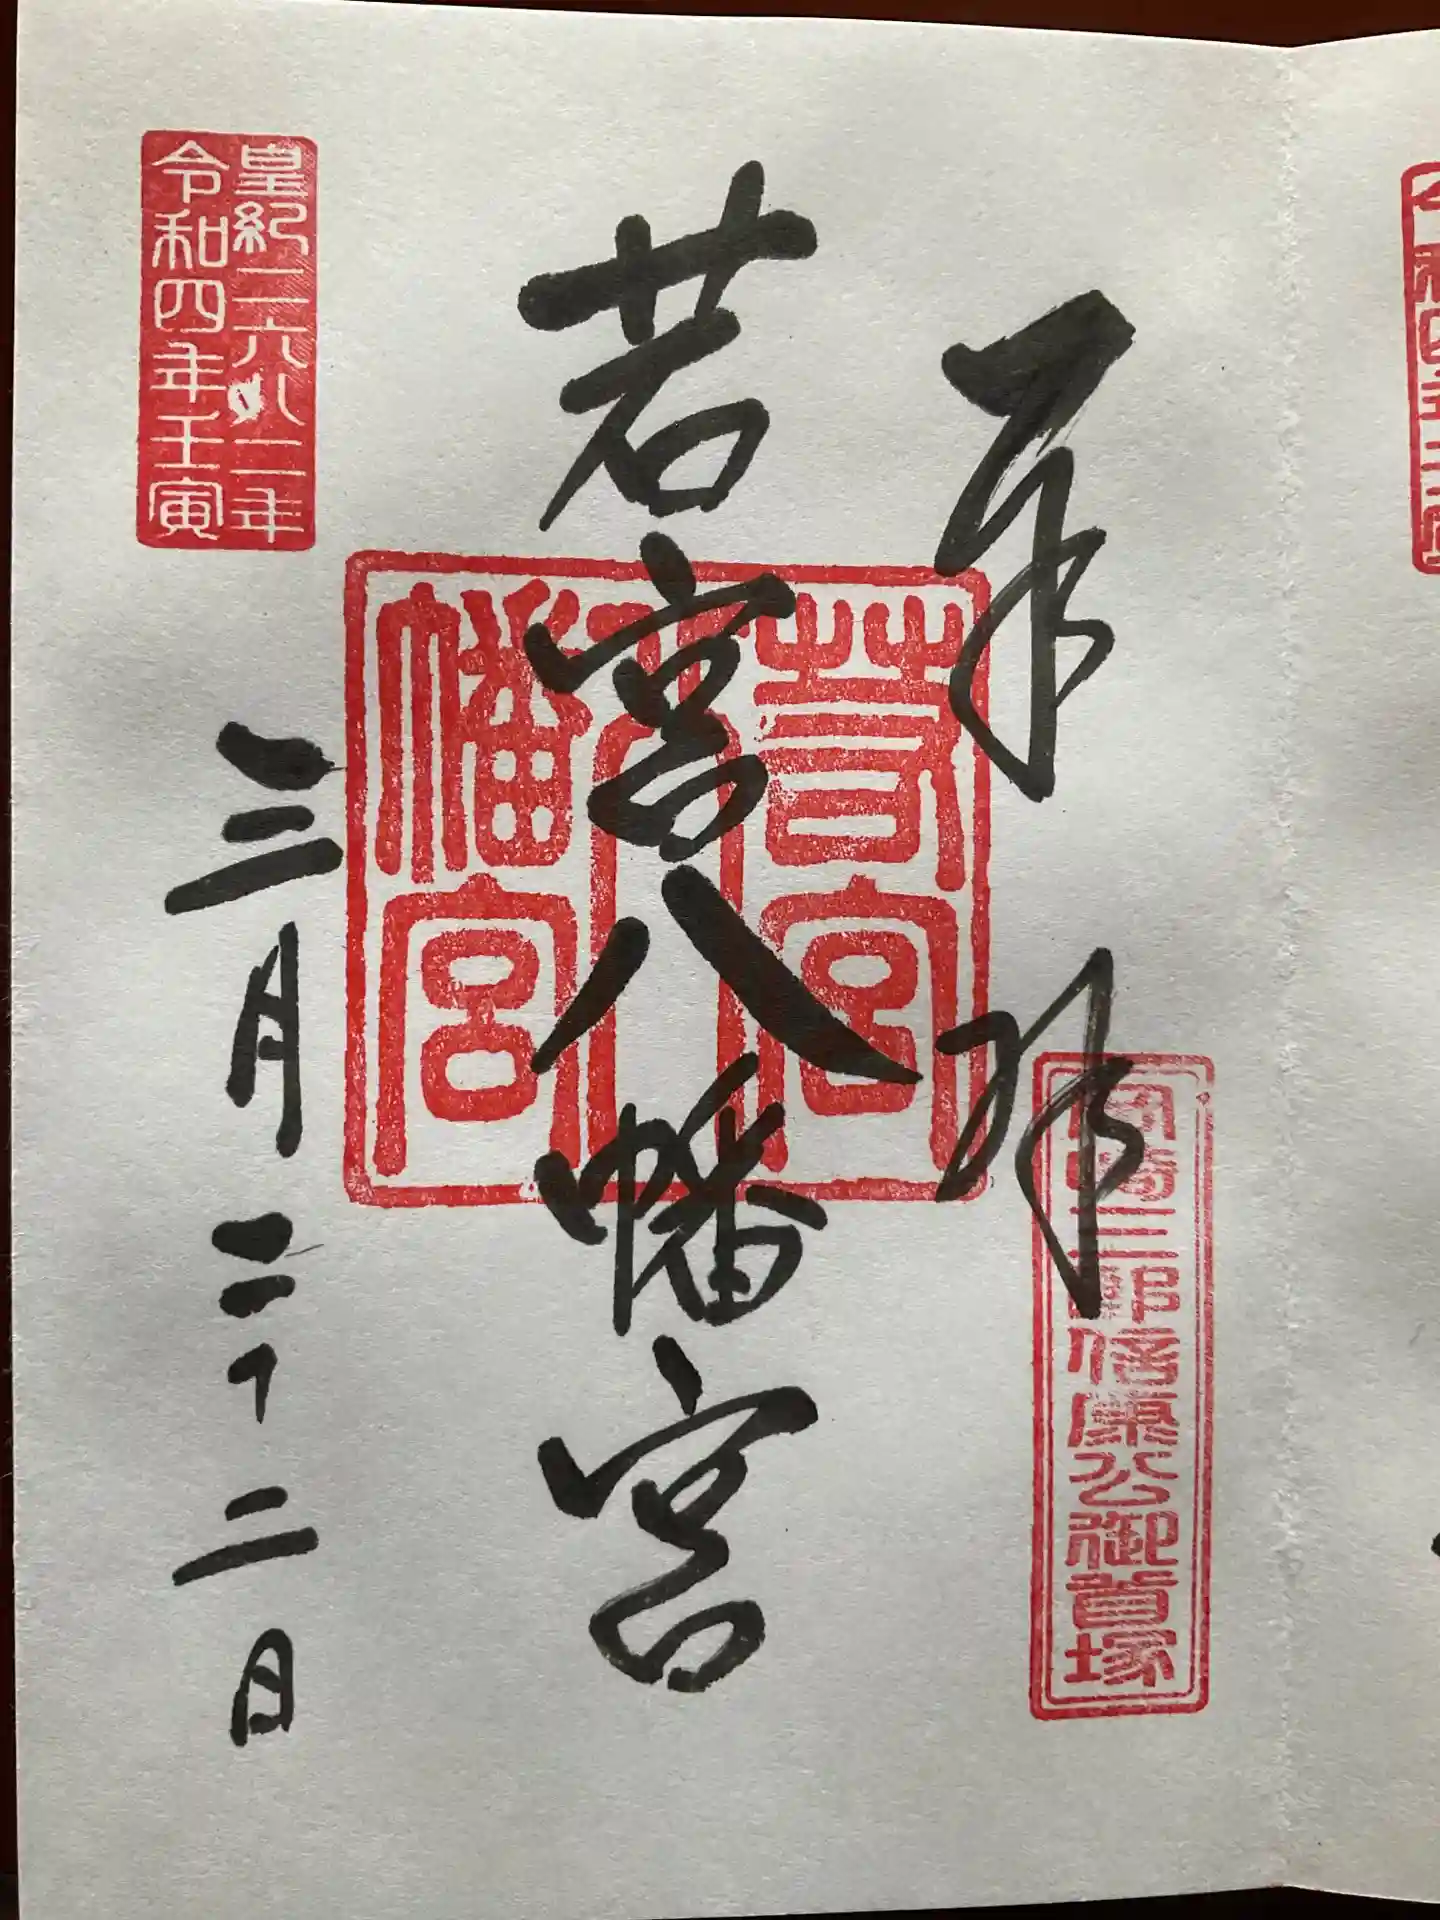 奉拝
岡崎三郎信康公御首塚
若宮八幡宮
若宮
八
幡宮
皇紀二六八二年
令和四年壬寅
三月二十二日